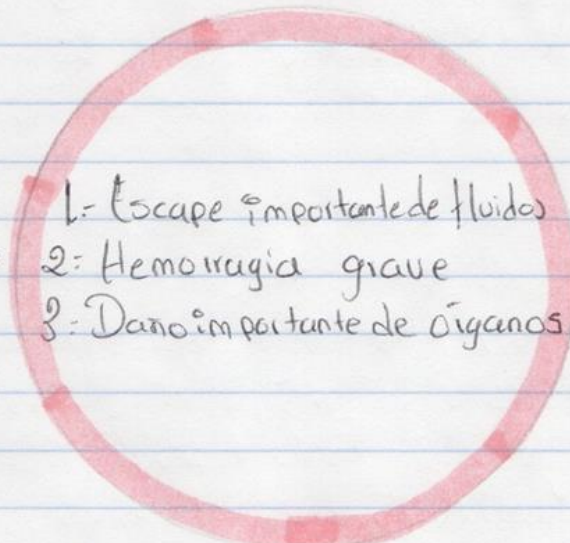 1.- Escape importante de fluidos
2: Hemorragia grave
3: Daño importante de órganos